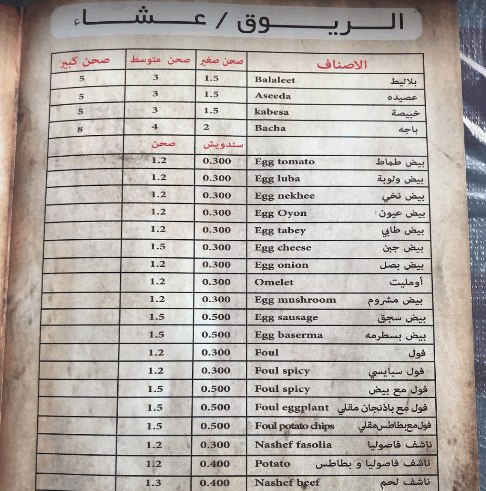 الريوق / عشاء
الاصناف صحن صغير صحن متوسط صحن كبير
بلاليط Balaleet 1.5 3 5
عصيده Aseeda 1.5 3 5
خبيصة kabesa 1.5 3 5
باجه Bacha 2 4 8
سندويش صحن
بيض طماط Egg tomato 0.300 1.2
بيض ولوبة Egg luba 0.300 1.2
بيض نخي Egg nekhee 0.300 1.2
بيض عيون Egg Oyon 0.300 1.2
بيض طابي Egg tabey 0.300 1.2
بيض جبن Egg cheese 0.300 1.5
بيض بصل Egg onion 0.300 1.2
أومليت Omelet 0.300 1.2
بيض مشروم Egg mushroom 0.300 1.2
بيض سجق Egg sausage 0.500 1.5
بيض بسطرمه Egg baserma 0.500 1.5
فول Foul 0.300 1.2
فول سبايسي Foul spicy 0.300 1.2
فول مع بيض Foul spicy 0.500 1.5
فول مع باذنجان مقلي Foul eggplant 0.500 1.5
فول مع بطاطس مقلي Foul potato chips 0.500 1.5
ناشف فاصوليا Nashef fasolia 0.300 1.2
ناشف فاصوليا و بطاطس Potato 0.400 1.2
ناشف لحم Nashef beef 0.400 1.3